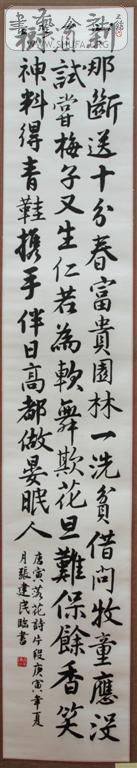 那斷送十分春富貴園林一洗貧借問牧童應没
試嘗梅子又生仁若為軟舞欺花旦難保餘香笑
神料得青鞋携手伴日高都做晏眠人
唐寅落花詩片段庚寅年夏
月張建民臨書